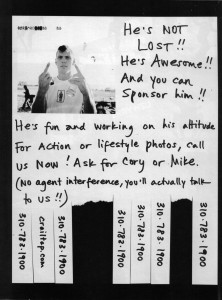 He's NOT
LOST!!
He's Awesome!!
And you can
Sponsor him!!
He's fun and working on his attitude
For Action or lifestyle photos, call
us Now! Ask for Cory or Mike.
(No agent interference, you'll actually talk
to us!!)
crailtap.com
310-782-1900
310-782-1900
310-782-1900
310-782-1900
310-783-1900
310-782-1900